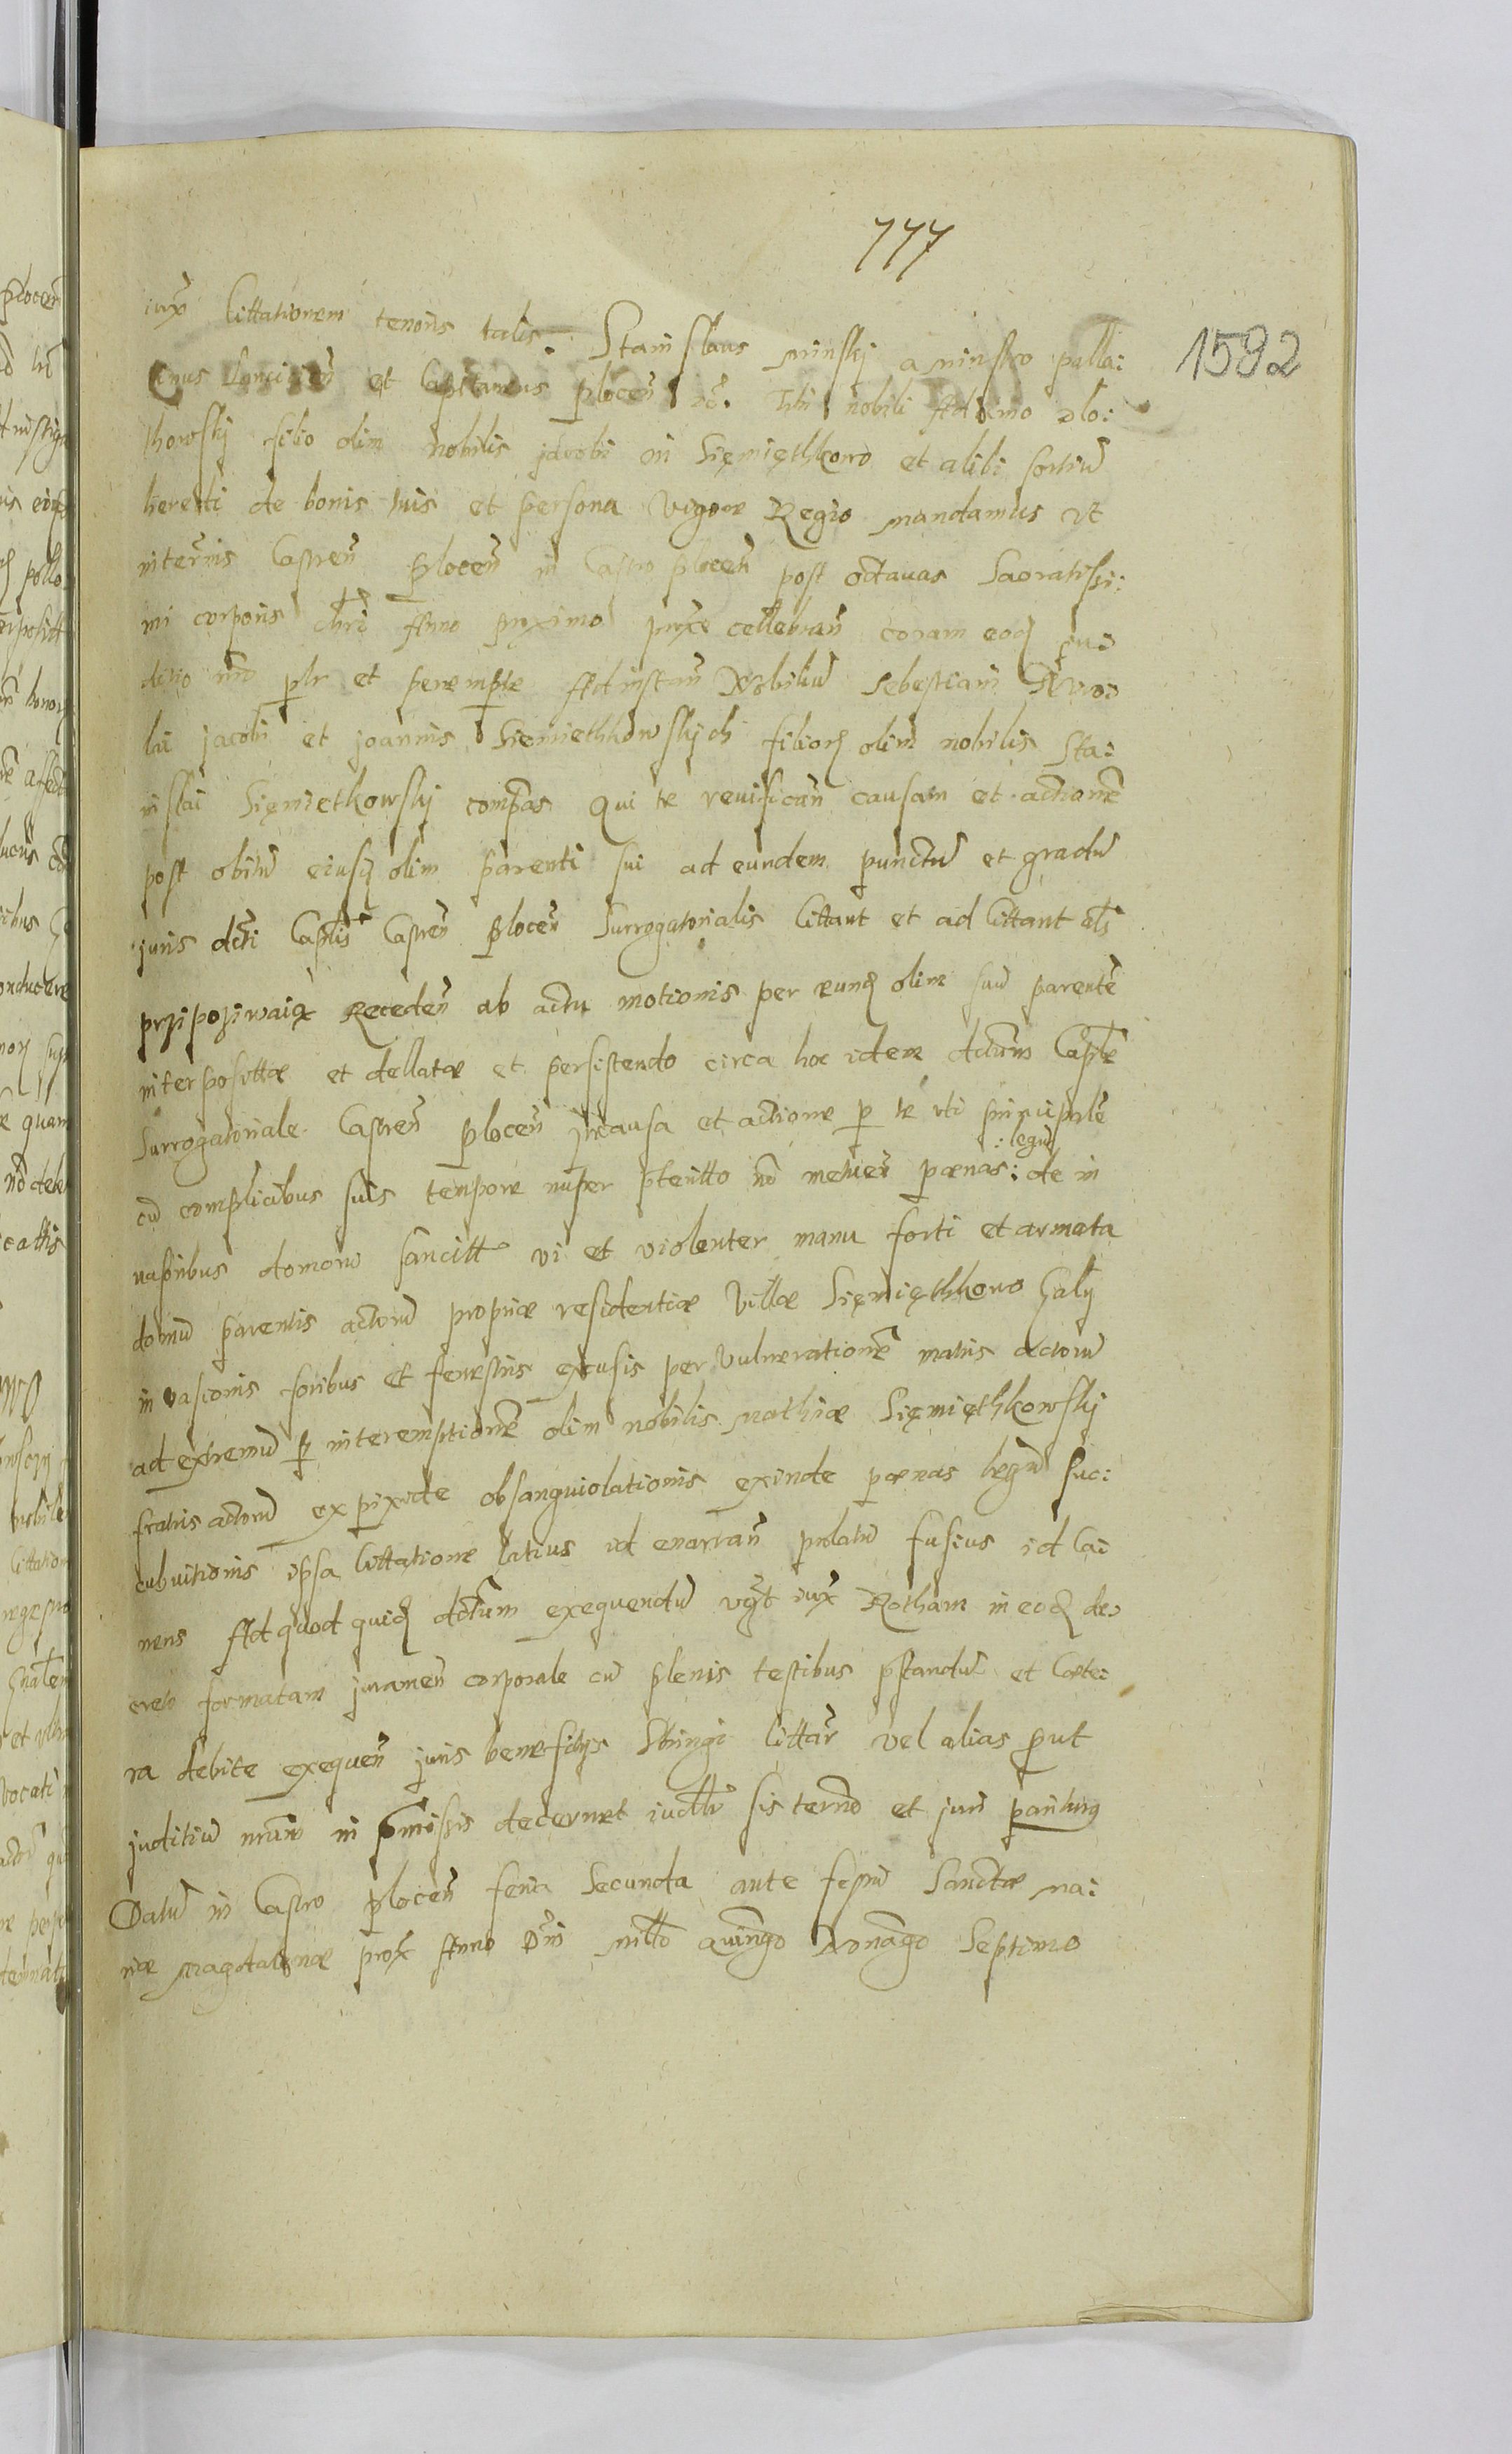 777
1592
iux̄ Cittationem tenoris talis. Stanislaus minskj a minsko palla:
tinus Lancicien̄ et Capitaneus plocen̄ Tibi nobili Adamo
filio olim Nobilis jacobi in Siemięthkowo et alibi sortiū
heredi de bonis tuis et persona vigore Regio mandamus vt
in ter̄nis Castren̄ plocen̄ in Castro plocen̄ post octavas Sacratissi:
mi corporis chrī Anno proximo celebran̄ coram eoq̨ iu
ditio nr̄o plr et perempte Ad instan̄ Nobiliū Sebestiani
jacobi et joannis Siemiethkowskich filiorq̨ olim nobilis Sta:
nislai Sięmietkowskj compas Qui te reuificań causam et actionē
post obitū eiusq̨ olim parenti sui ad eundem punctū et gradū
juris dcti Castren̄ plocen̄ Surrogatorialis Cittant et ad Cittant als
przipoziwaią Receden̄ ab actu motionis per eunq̨ olim suū parentē
interpositæ et dellatæ et persistendo circa hoc idem dcturm Captle
Surrogatoriale Castren̄ plocen̄ in causa et actione p te vti principalē
cū complicibus suis tempore nuper pteritto nō metuen̄ pænas :legū: de in
uasoribus domorū sancitt vi et violenter manu forti et armata
domū parentis actorū propriæ residentiæ villæ Sięmięthkowo
invasconis foribus et fenestris excusis per vulnerationē matris actorū
ad extremū p interemptionē olim nobilis mathiæ Sięmięthkowskj
fratris actorū ex pixide obsanguiolationis exinde pænas legū suc:
cubuitionis ipsa Cittatione latius id enarran̄ prolatū fusius id
nens Ad quod quiq̨ dctum exequendū iux̄ Rotham in eoq̨ de
creto formatam juramen̄ corporale cū plenis testibus pstandū et Cæte:
ra debite exequen̄ juris benefitijs Cittar vel alias put
juditiū nrum in pmissis decernet iudr̄ sis terno et juri
Datū in Castro plocen̄ feria Secunda ante festū Sanctæ ma:
riæ magdalenæ prox Anno Dn̄i millo quingo Nonago Septimo